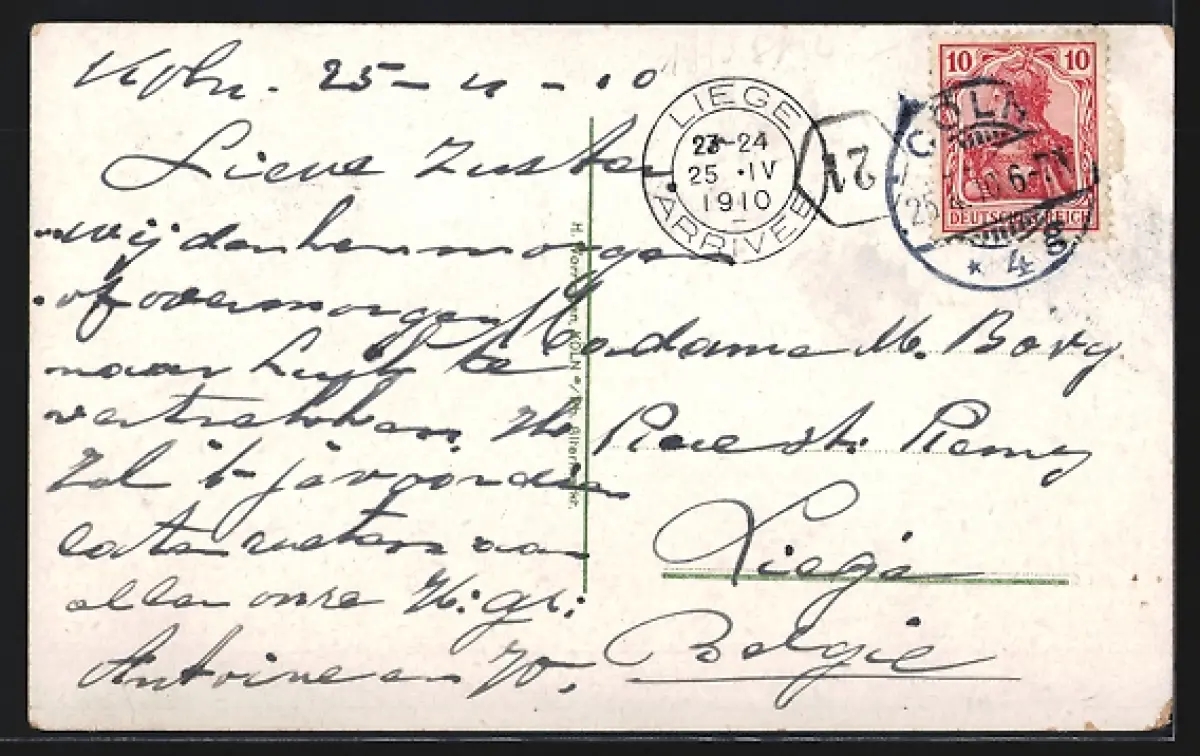 Köln. 25 - 4 - 10
Lieve Zuster
wij denken morgen
of overmorgen
naar Luik te
vertrekken. Ik
zal 't je voordien
laten weten aan
allen onze H: gr:
Antoine en Jo.
LIEGE
23-24
25 ·IV
1910
ARRIVEE
21
10 10
DEUTSCHES REICH
CÖLN
25.4.10 6-7N
* 4 g
Madame M. Bovy
Rue St. Remy
Liège
Belgie